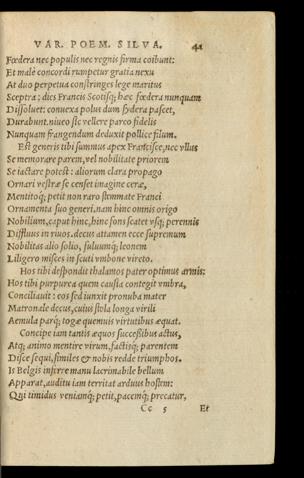 VAR. POEM. SILVA. 41
Fœdera nec populis nec regnis firma coibunt:
Et malè concordi rumpetur gratia nexu
At duo perpetua constringes lege maritus
Sceptra: dies Francis Scotisq́; hæc fœdera nunquam
Dissoluet: conuexa polus dum sydera pascet,
Durabunt. niueo sic vellere parco fidelis
Nunquam frangendum deduxit pollice filum.
Est generis tibi summus apex Francisce, nec vllus
Se memorare parem, vel nobilitate priorem
Se iactare potest: aliorum clara propago
Ornari vestræ se censet imagine ceræ,
Mentitoq́; petit non raro stemmate Franci
Ornamenta suo generi. nam hinc omnis origo
Nobilium, caput hinc, hinc fons scatet vsq́; perennis
Diffluus in riuos. decus attamen ecce supremum
Nobilitas alio solio, fuluumq́; leonem
Liligero misces in scuti vmbone vireto.
Hos tibi despondit thalamos pater optimus armis:
Hos tibi purpurea quem caussia contegit vmbra,
Conciliauit: eos sed iunxit pronuba mater
Matronale decus, cuius stola longa virili
Aemula parq́; togæ quemuis virtutibus æquat.
Concipe iam tantis æquos successibus astus,
Atq́; animo mentire virum, factisq́; parentem
Disce sequi, similes & nobis redde triumphos.
Is Belgis inferre manu lacrimabile bellum
Apparat, auditu iam territat arduus hostem:
Qui timidus veniamq́; petit, pacemq́; precatur,
Cc 5 Et